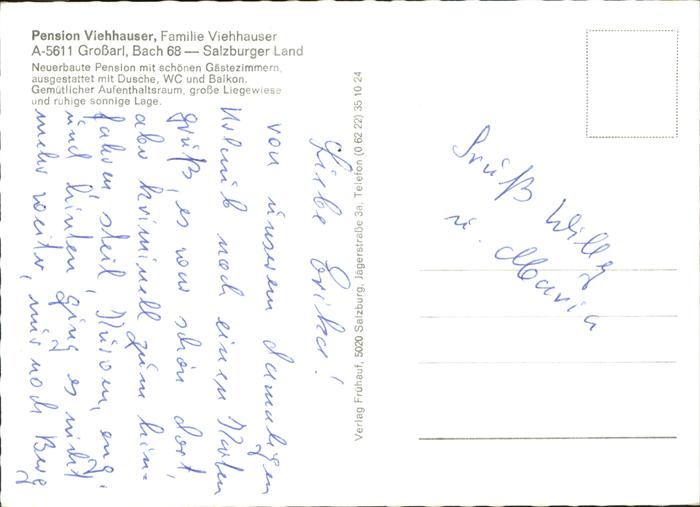 Pension Viehhauser, Familie Viehhauser
A-5611 Großarl, Bach 68 — Salzburger Land
Neuerbaute Pension mit schönen Gästezimmern,
ausgestattet mit Dusche, WC und Balkon.
Gemütlicher Aufenthaltsraum, große Liegewiese
und ruhige sonnige Lage.
Liebe Erika!
von unserem damaligen
Urlaub noch einen Karten
gruß, es war schön dort,
aber kriminell zum hin-
fahren, steil, Kurven, eng.
und hinten ging es nicht
mehr weiter, nur noch Berg
Verlag Frühauf, 5020 Salzburg, Jägerstraße 3a, Telefon (0 62 22) 35 10 24
Gruß Willy
u. Maria